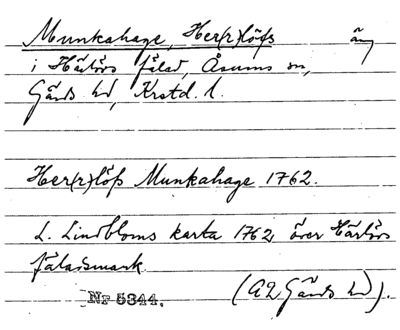 Munkahage, Her(r)löfs äng
i Härlövs fälad, Åsums sn,
Gärds hd, Krstd. l.
Her(r)löfs Munkahage 1762.
L. Lindbloms karta 1762 över Härlövs
fäladsmark
(A2 Gärds hd).
Nr 5344.